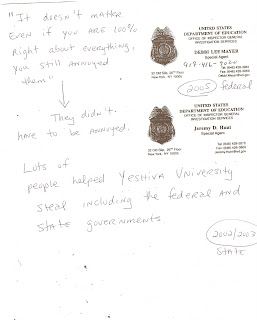 "It doesn't matter
Even if you are 100%
Right about everything,
you still annoyed
them"
They didn't.
have to be annoyed.
UNITED STATES
DEPARTMENT OF EDUCATION
OFFICE OF INSPECTOR GENERAL
INVESTIGATION SERVICES
Special Agent
32 Old Slip, 26th Floor
New York, NY 10005
2005 federal
UNITED STATES
DEPARTMENT OF EDUCATION
OFFICE OF INSPECTOR GENERAL
INVESTIGATION SERVICES
Jeremy D. Hunt
Special Agent
32 Old Slip, 26th Floor
New York, NY 10005
Lots of
people helped Yeshiva University
steal including the federal and
state governments
2002/2003
STATE